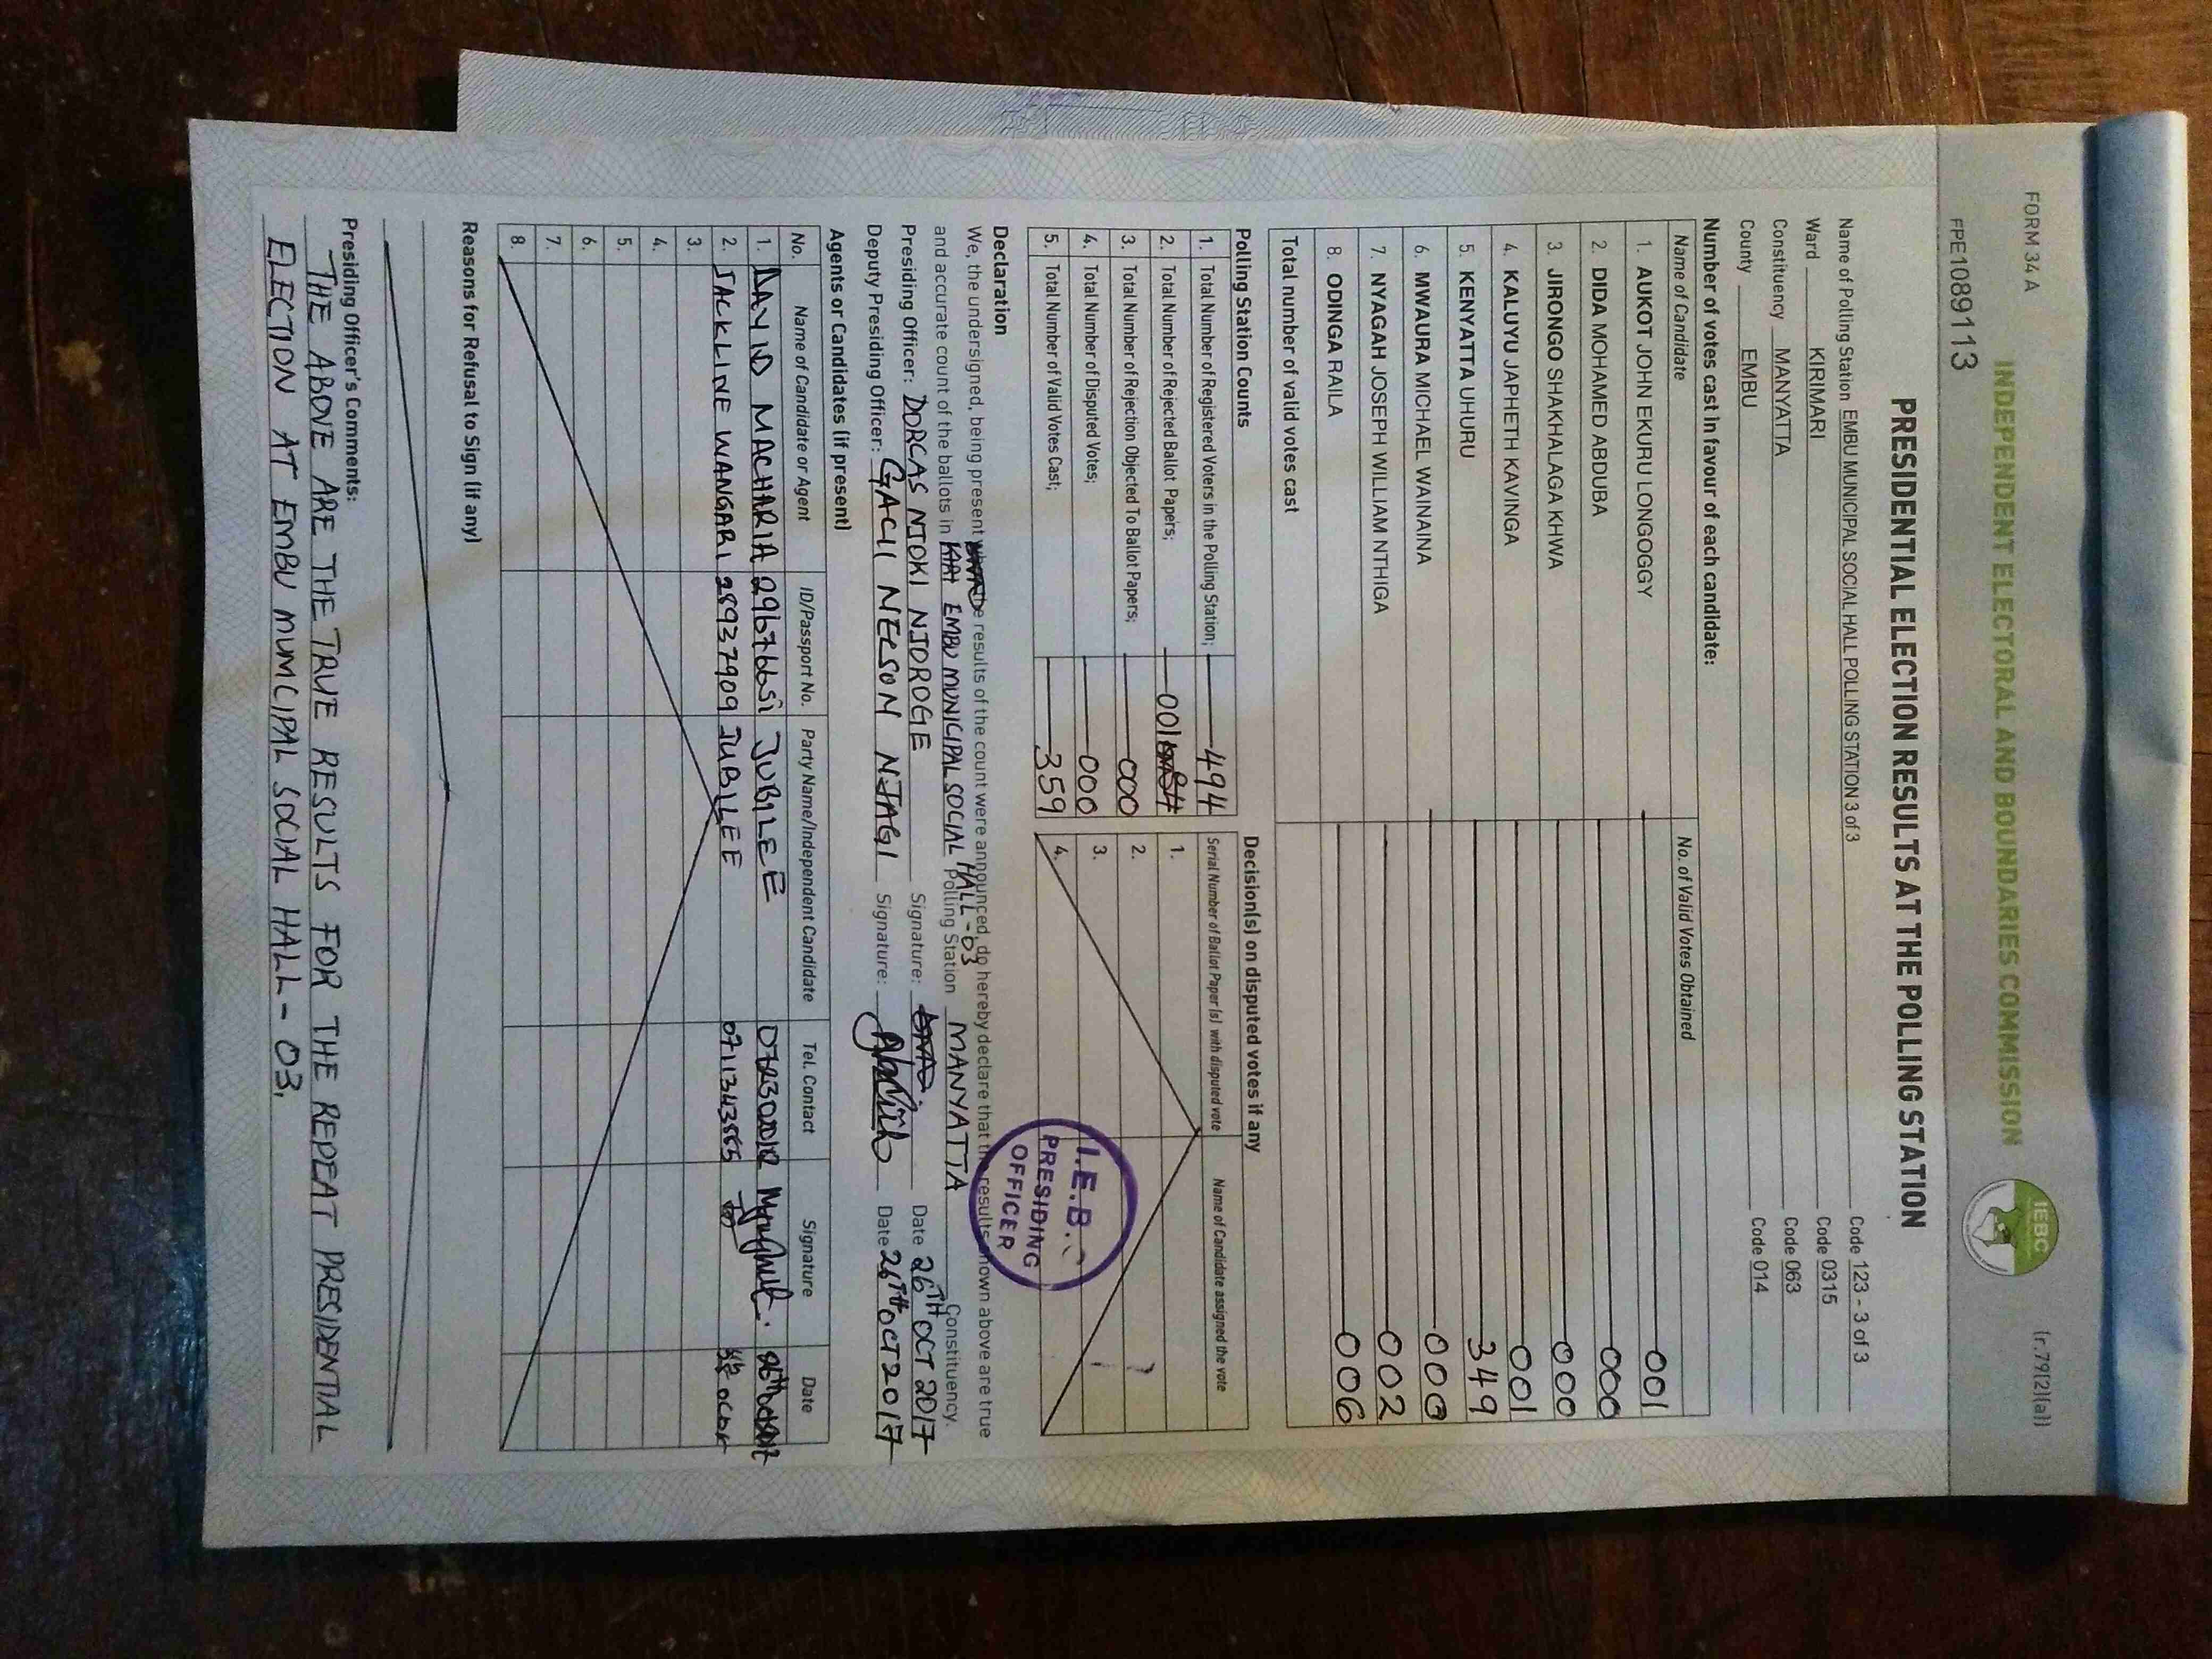 FORM 34 A
(r.79(2)(a))
INDEPENDENT ELECTORAL AND BOUNDARIES COMMISSION
IEBC
FPE1089113
PRESIDENTIAL ELECTION RESULTS AT THE POLLING STATION
Name of Polling Station EMBU MUNICIPAL SOCIAL HALL POLLING STATION 3 of 3 Code 123 - 3 of 3
Ward KIRIMARI Code 0315
Constituency MANYATTA Code 063
County EMBU Code 014
Number of votes cast in favour of each candidate:
Name of Candidate No. of Valid Votes Obtained
1. AUKOT JOHN EKURU LONGOGGY 001
2. DIDA MOHAMED ABDUBA 000
3. JIRONGO SHAKHALAGA KHWA 000
4. KALUYU JAPHETH KAVINGA 001
5. KENYATTA UHURU 349
6. MWAURA MICHAEL WAINAINA 000
7. NYAGAH JOSEPH WILLIAM NTHIGA 002
8. ODINGA RAILA 006
Total number of valid votes cast
Polling Station Counts Decision(s) on disputed votes if any
1. Total Number of Registered Voters in the Polling Station; 494 Serial Number of Ballot Paper (s) with disputed vote Name of Candidate assigned the vote
2. Total Number of Rejected Ballot Papers; 001 1.
3. Total Number of Rejection Objected To Ballot Papers; 000 2.
4. Total Number of Disputed Votes; 000 3.
5. Total Number of Valid Votes Cast; 359 4.
I.E.B.C
PRESIDING
OFFICER
Declaration
We, the undersigned, being present results of the count were announced, do hereby declare that the results shown above are true
and accurate count of the ballots in EMBU MUNICIPAL SOCIAL HALL-03 Polling Station MANYATTA Constituency.
Presiding Officer: DORCAS NJOKI NJOROGE Signature: Date 26TH OCT 2017
Deputy Presiding Officer: GACII NEESON NJAGI Signature: Date 26TH OCT 2017
Agents or Candidates (if present)
No. Name of Candidate or Agent ID/Passport No. Party Name/Independent Candidate Tel. Contact Signature Date
1. DAVID MACHARIA JUBILEE
2. JACKLINE WANGARI 28937909 JUBILEE
3.
4.
5.
6.
7.
8.
Reasons for Refusal to Sign (if any)
Presiding Officer's Comments:
THE ABOVE ARE THE TRUE RESULTS FOR THE REPEAT PRESIDENTIAL
ELECTION AT EMBU MUMCIPAL SOCIAL HALL - 03.